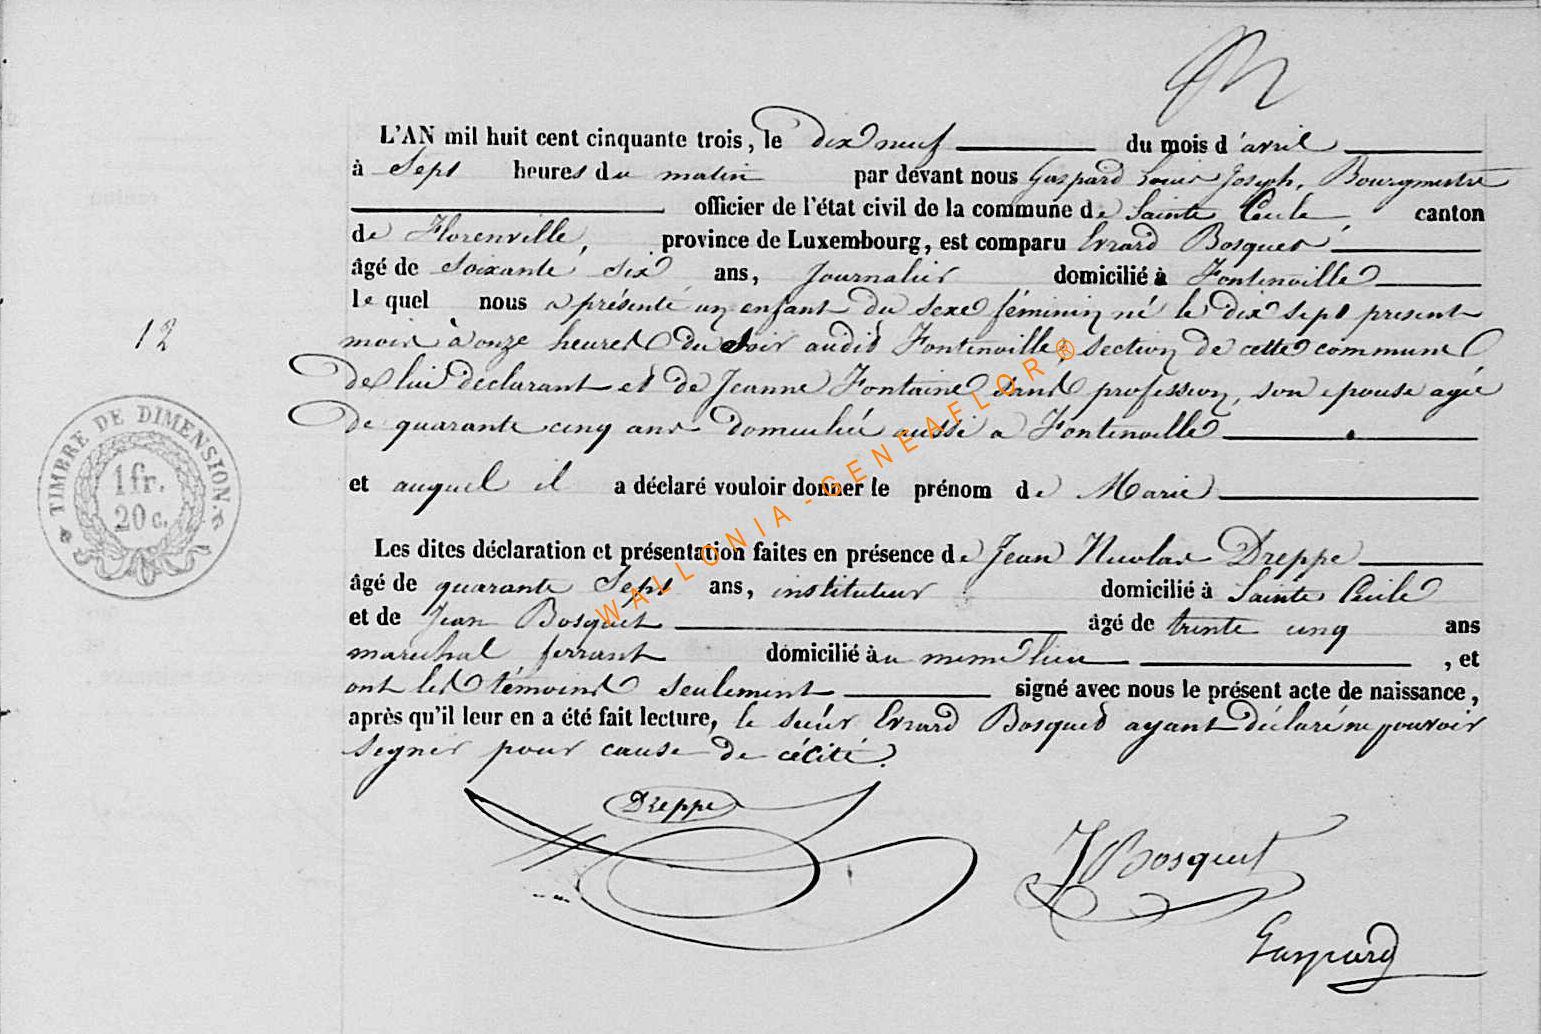 L'AN mil huit cent cinquante trois, le dix neuf du mois d'avril
à Sept heures du matin par devant nous Gaspard Louis Joseph, Bourgmestre
officier de l'état civil de la commune de Sainte Cecile, canton
de Florenville, province de Luxembourg, est comparu Evrard Bosquet
âgé de soixante six ans, journalier domicilié à Fontenoille
le quel nous a présenté un enfant du sexe féminin né le dix sept present
mois à onze heures du soir audit Fontenoille, section de cette commune
de lui declarant et de Jeanne Fontaine sans profession, son epouse agée
de quarante cinq ans domiciliée aussi a Fontenoille
12
et auquel il a déclaré vouloir donner le prénom de Marie
TIMBRE DE DIMENSION.
1 fr.
20 c.
Les dites déclaration et présentation faites en présence de Jean Nicolas Dreppe
âgé de quarante Sept ans, instituteur domicilié à Sainte Cecile
et de Jean Bosquet âgé de trente cinq ans
marechal ferrant domicilié au meme lieu, et
ont les témoins seulement signé avec nous le présent acte de naissance,
après qu'il leur en a été fait lecture, le sieur Evrard Bosquet ayant déclaré ne pouvoir
signer pour cause de cécité.
WALLONIA-GENEAFLOR®
Dreppe
J Bosquet
Gaspard